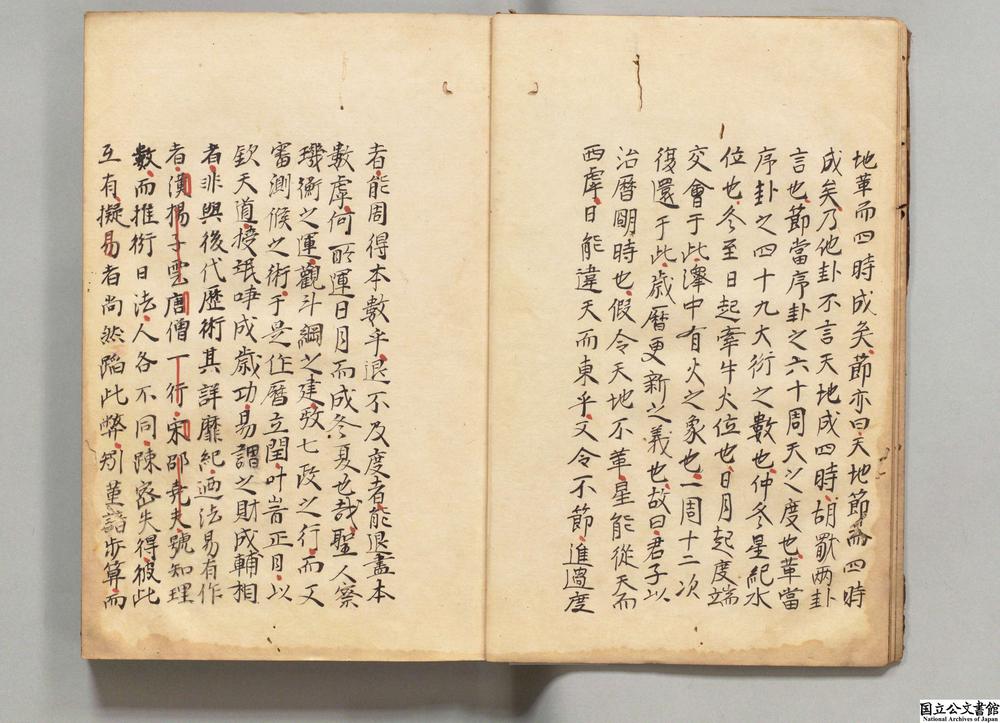 地革而四時成矣節亦曰天地節而四時
成矣乃他卦不言天地成四時胡歟两卦
言也節當序卦之六十周天之度也革當
序卦之四十九大衍之數也仲冬星紀水
位也冬至日起牽牛火位也日月起度端
交會于此澤中有火之象也一周十二次
復還于此歲曆更新之義也故曰君子以
治曆明時也假令天地不革星能從天而
西虖日能違天而東乎又令不節進過度
者能周得本數乎退不及度者能退盡本
數虖何所運日月而成冬夏也哉聖人察
璣衡之運觀斗綱之建攷七政之行而又
審測候之術于是作曆立閏叶旹正日以
欽天道授氓時成歲功易謂之財成輔相
者非與後代歷術其詳靡紀迺法易有作
者漢揚子雲唐僧一行宋邵堯夫號知理
數而推衍日法人各不同踈密失得彼此
互有擬易者尚然蹈此弊矧堇諳步算而
国立公文書館
National Archives of Japan